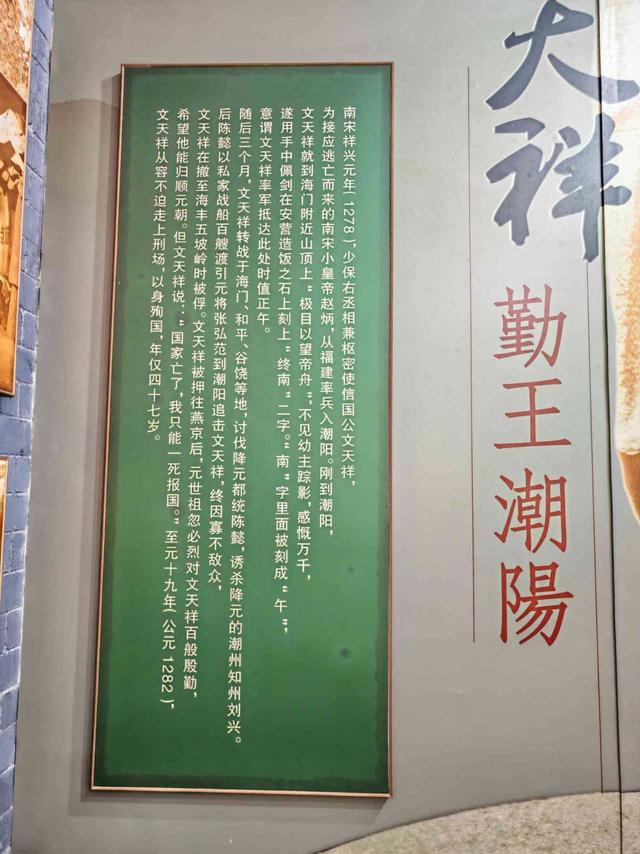 天祥
勤王潮陽
南宋祥兴元年(1278),少保右丞相兼枢密使信国公文天祥,
为接应逃亡而来的南宋小皇帝赵炳,从福建率兵入潮阳。刚到潮阳,
文天祥就到海门附近山顶上“极目以望帝舟”,不见幼主踪影,感慨万千,
遂用手中佩剑在安营造饭之石上刻上“终南”二字。“南”字里面被刻成“午”,
意谓文天祥率军抵达此处时值正午。
随后三个月,文天祥转战于海门、和平、谷饶等地,讨伐降元都统陈懿,诱杀降元的潮州知州刘兴。
后陈懿以私家战船百艘渡引元将张弘范到潮阳追击文天祥,终因寡不敌众,
文天祥在撤至海丰五坡岭时被俘。文天祥被押往燕京后,元世祖忽必烈对文天祥百般殷勤,
希望他能归顺元朝。但文天祥说:“国家亡了,我只能一死报国。”至元十九年(公元1282),
文天祥从容不迫走上刑场,以身殉国,年仅四十七岁。